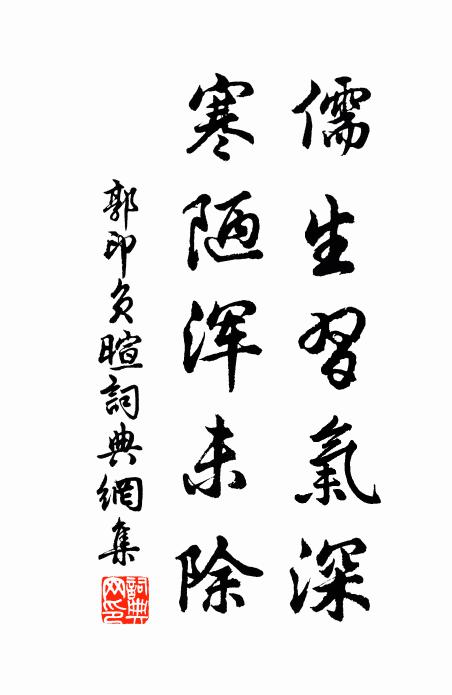 儒生習氣深
寒陋浑未除
郭印負暄詞典網集
詞典网印